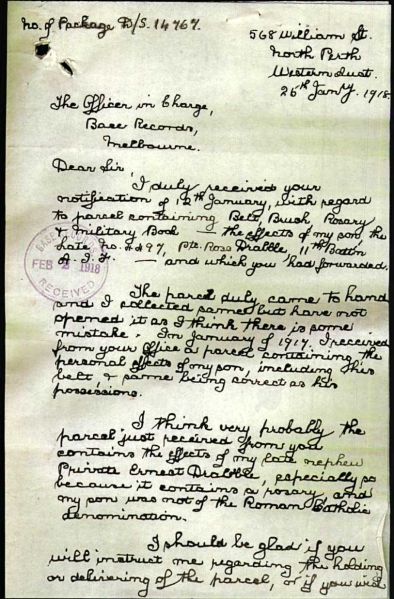 No. of Package D/S. 14767.
568 William St.
North Perth
Western Aust.
26th Jany. 1918.
The Officer in Charge,
Base Records,
Melbourne.
Dear Sir,
I duly received your
notification of 12th January, with regard
to parcel containing Belt, Brush, Rosary
& Military Book — the effects of my son the
late No. 4497, Pte. Ross Drabble, 11th Battn
A.I.F. — and which you had forwarded.
BASE RECORDS
FEB 2 1918
RECEIVED
The parcel duly came to hand
and I collected same but have not
opened it as I think there is some
mistake. In January of 1917, I received
from your Office a parcel containing the
personal effects of my son, including his
belt, & same being correct as his
possessions.
I think very probably the
parcel just received from you
contains the effects of my late nephew
Private Ernest Drabble, especially so
because it contains a rosary, and
my son was not of the Roman Catholic
denomination.
I should be glad if you
will instruct me regarding the holding
or delivering of the parcel, or if you wish